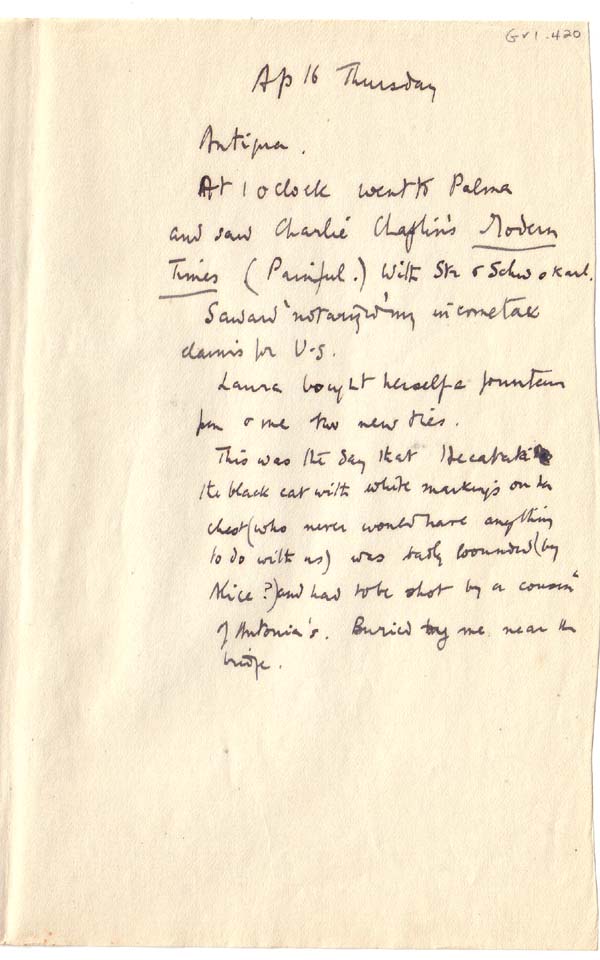 Gv1.420
Ap 16 Thursday
Antigua.
At 1 oclock went to Palma
and saw Charlie Chaplin's Modern
Times (Painful.) With Str & Schw & Karl.
Saward 'notarized' my income tax
claims for U-S.
Laura bought herself a fountain
pen & me two new ties.
This was the day that
the black cat with white markings on her
chest (who never would have anything
to do with us) was badly wounded (by
Alice?) and had to be shot by a cousin
of Antonia's. Buried by me near the
bridge.